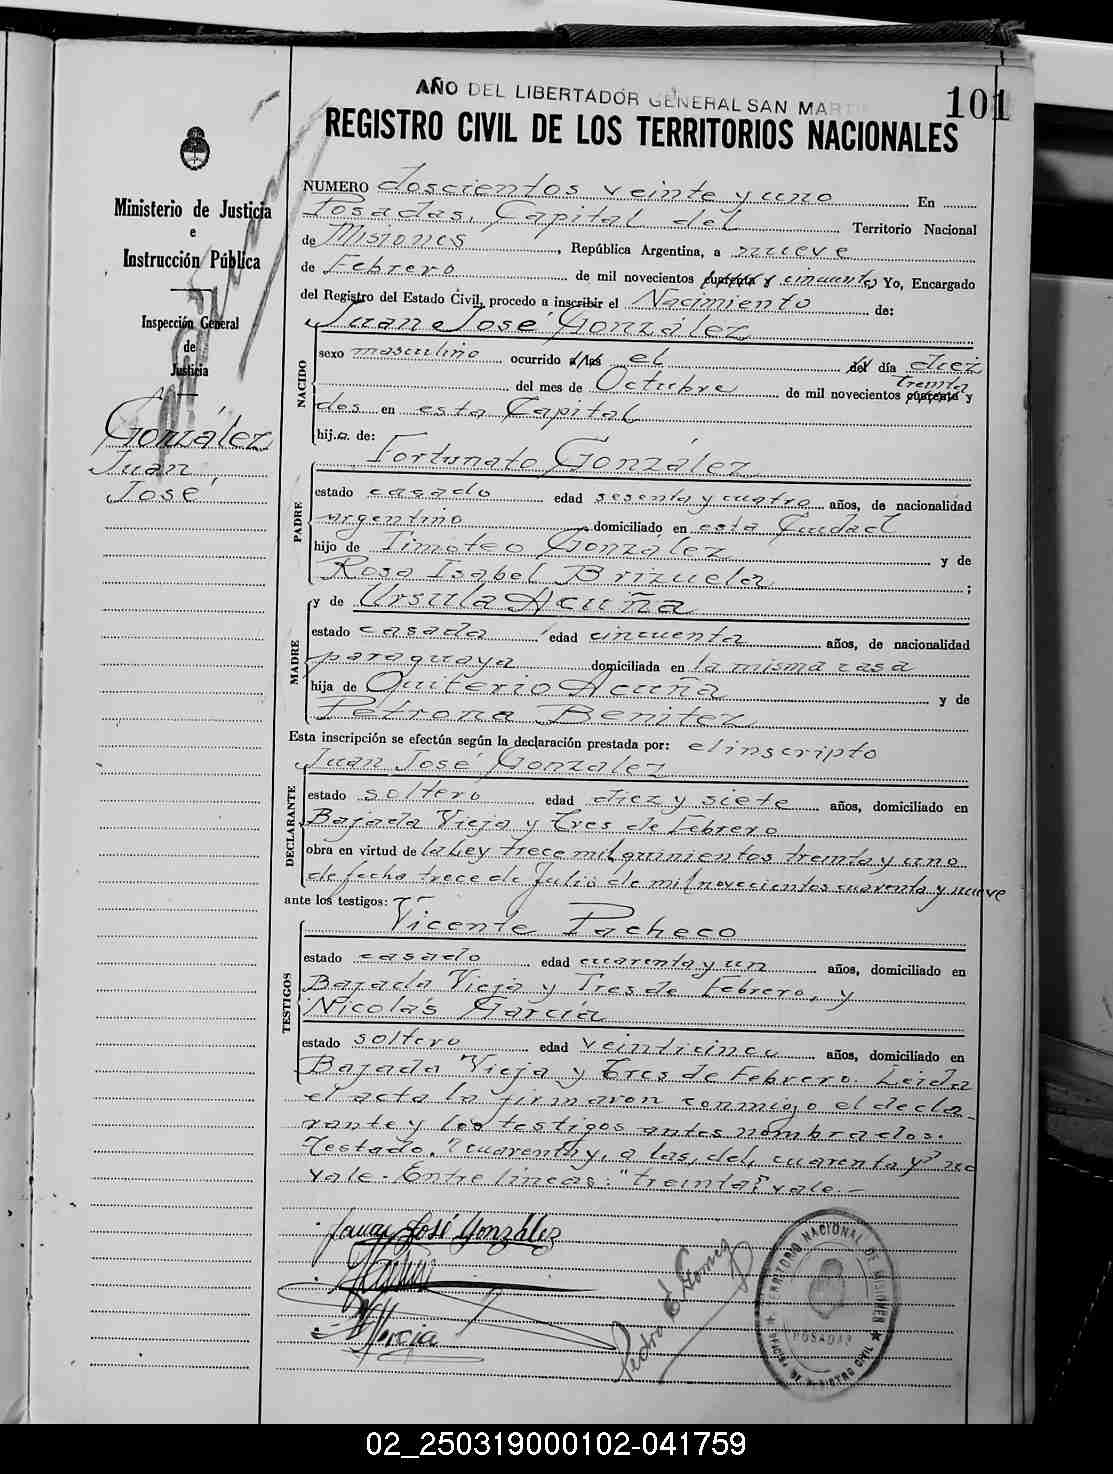 AÑO DEL LIBERTADOR GENERAL SAN MARTIN
101
REGISTRO CIVIL DE LOS TERRITORIOS NACIONALES
Ministerio de Justicia
e
Instrucción Pública
Inspección General
de
Justicia
González
Juan
José
NUMERO doscientos veinte y uno En
Posadas, Capital del Territorio Nacional
de Misiones, República Argentina, a nueve
de Febrero de mil novecientos cuarenta y cincuenta Yo, Encargado
del Registro del Estado Civil, procedo a inscribir el Nacimiento de:
Juan José González
NACIDO
sexo masculino ocurrido a/las el del día diez
treinta
del mes de Octubre de mil novecientos cuarenta y
dos en esta Capital
hij.o. de:
Fortunato González
PADRE
estado casado edad sesenta y cuatro años, de nacionalidad
argentino domiciliado en esta Ciudad
hijo de Timoteo González y de
Rosa Isabel Brizuela ;
y de Ursula Acuña
MADRE
estado casada edad cincuenta años, de nacionalidad
paraguaya domiciliada en la misma casa
hija de Quiterio Acuña y de
Petrona Benitez
Esta inscripción se efectúa según la declaración prestada por: el inscripto
Juan José González
DECLARANTE
estado soltero edad diez y siete años, domiciliado en
Bajada Vieja y Tres de Febrero
obra en virtud de la Ley trece mil quinientos treinta y uno
de fecha trece de Julio de mil novecientos cuarenta y nueve
ante los testigos:
Vicente Pacheco
TESTIGOS
estado casado edad cuarenta y un años, domiciliado en
Bajada Vieja y Tres de Febrero, y
Nicolás García
estado soltero edad veinticinco años, domiciliado en
Bajada Vieja y Tres de Febrero. Leida
el acta la firmaron conmigo el decla-
rante y los testigos antes nombrados.
Testado. "cuarenta y, a las, del, cuarenta y" no
vale. Entre lineas: "treinta" vale.-
Juan José González
García
Pedro E. Gomez
TERRITORIO NACIONAL DE MISIONES
POSADAS
OFICINA DE REGISTRO CIVIL
02_250319000102-041759